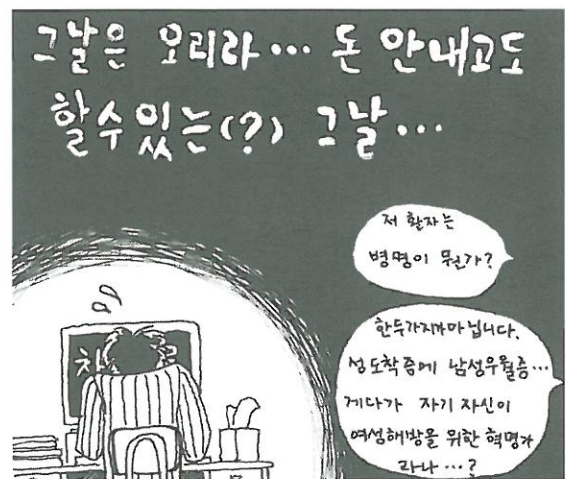 그날은 오리라... 돈 안내고도
할수 있는(?) 그날...
저 환자는
병명이 뭔가?
한두가지가 아닙니다.
성도착증에 남성우월증...
게다가 자기 자신이
여성해방을 위한 혁명가
라나...?